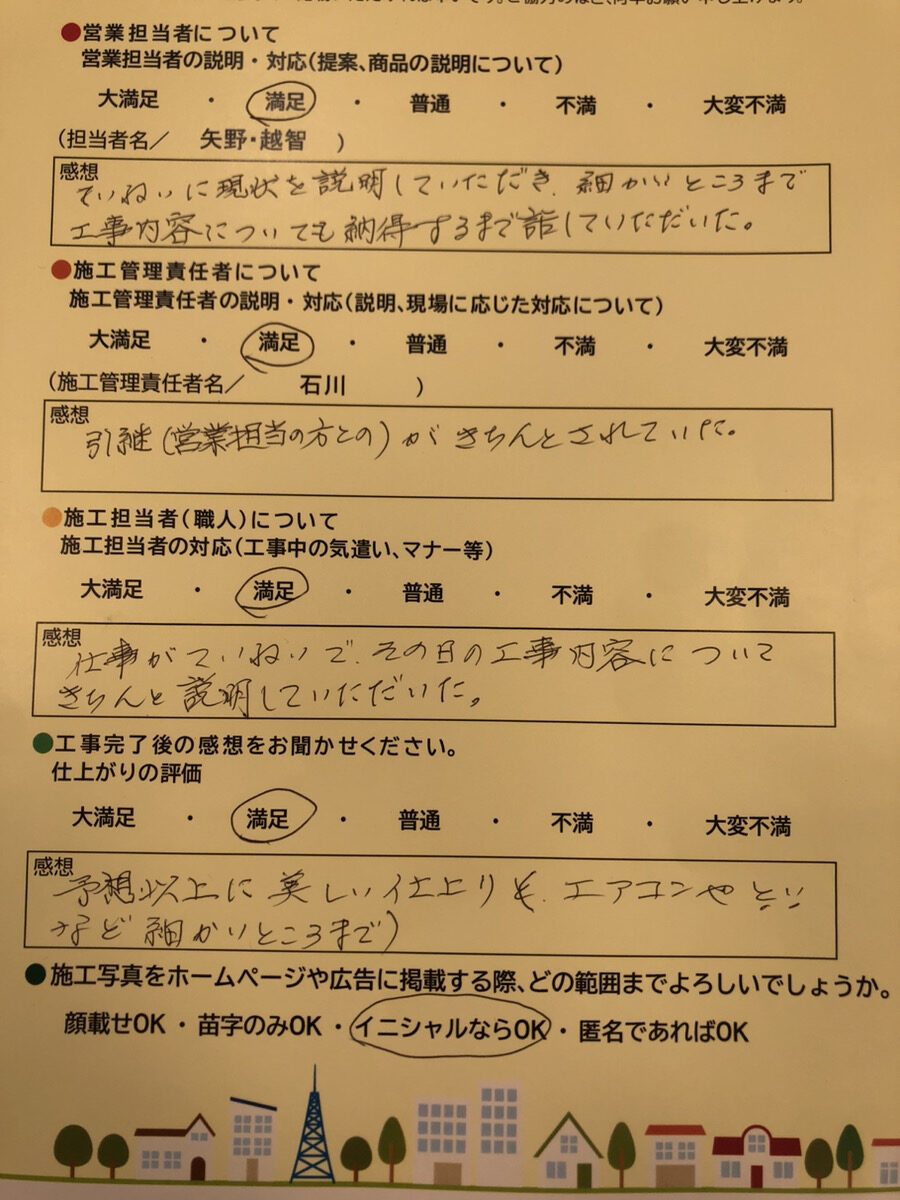 ●営業担当者について
営業担当者の説明・対応(提案、商品の説明について)
大満足 ・ 満足 ・ 普通 ・ 不満 ・ 大変不満
(担当者名／ 矢野・越智 )
感想
ていねいに現状を説明していただき、細かいところまで
工事内容についても納得するまで話していただいた。
●施工管理責任者について
施工管理責任者の説明・対応(説明、現場に応じた対応について)
大満足 ・ 満足 ・ 普通 ・ 不満 ・ 大変不満
(施工管理責任者名／ 石川 )
感想
引継(営業担当の方との)がきちんとされていた。
●施工担当者(職人)について
施工担当者の対応(工事中の気遣い、マナー等)
大満足 ・ 満足 ・ 普通 ・ 不満 ・ 大変不満
感想
仕事がていねいで、その日の工事内容について
きちんと説明していただいた。
●工事完了後の感想をお聞かせください。
仕上がりの評価
大満足 ・ 満足 ・ 普通 ・ 不満 ・ 大変不満
感想
予想以上に美しい仕上り、エアコンやとい
など細かいところまで)
●施工写真をホームページや広告に掲載する際、どの範囲までよろしいでしょうか。
顔載せOK ・ 苗字のみOK ・ イニシャルならOK ・ 匿名であればOK